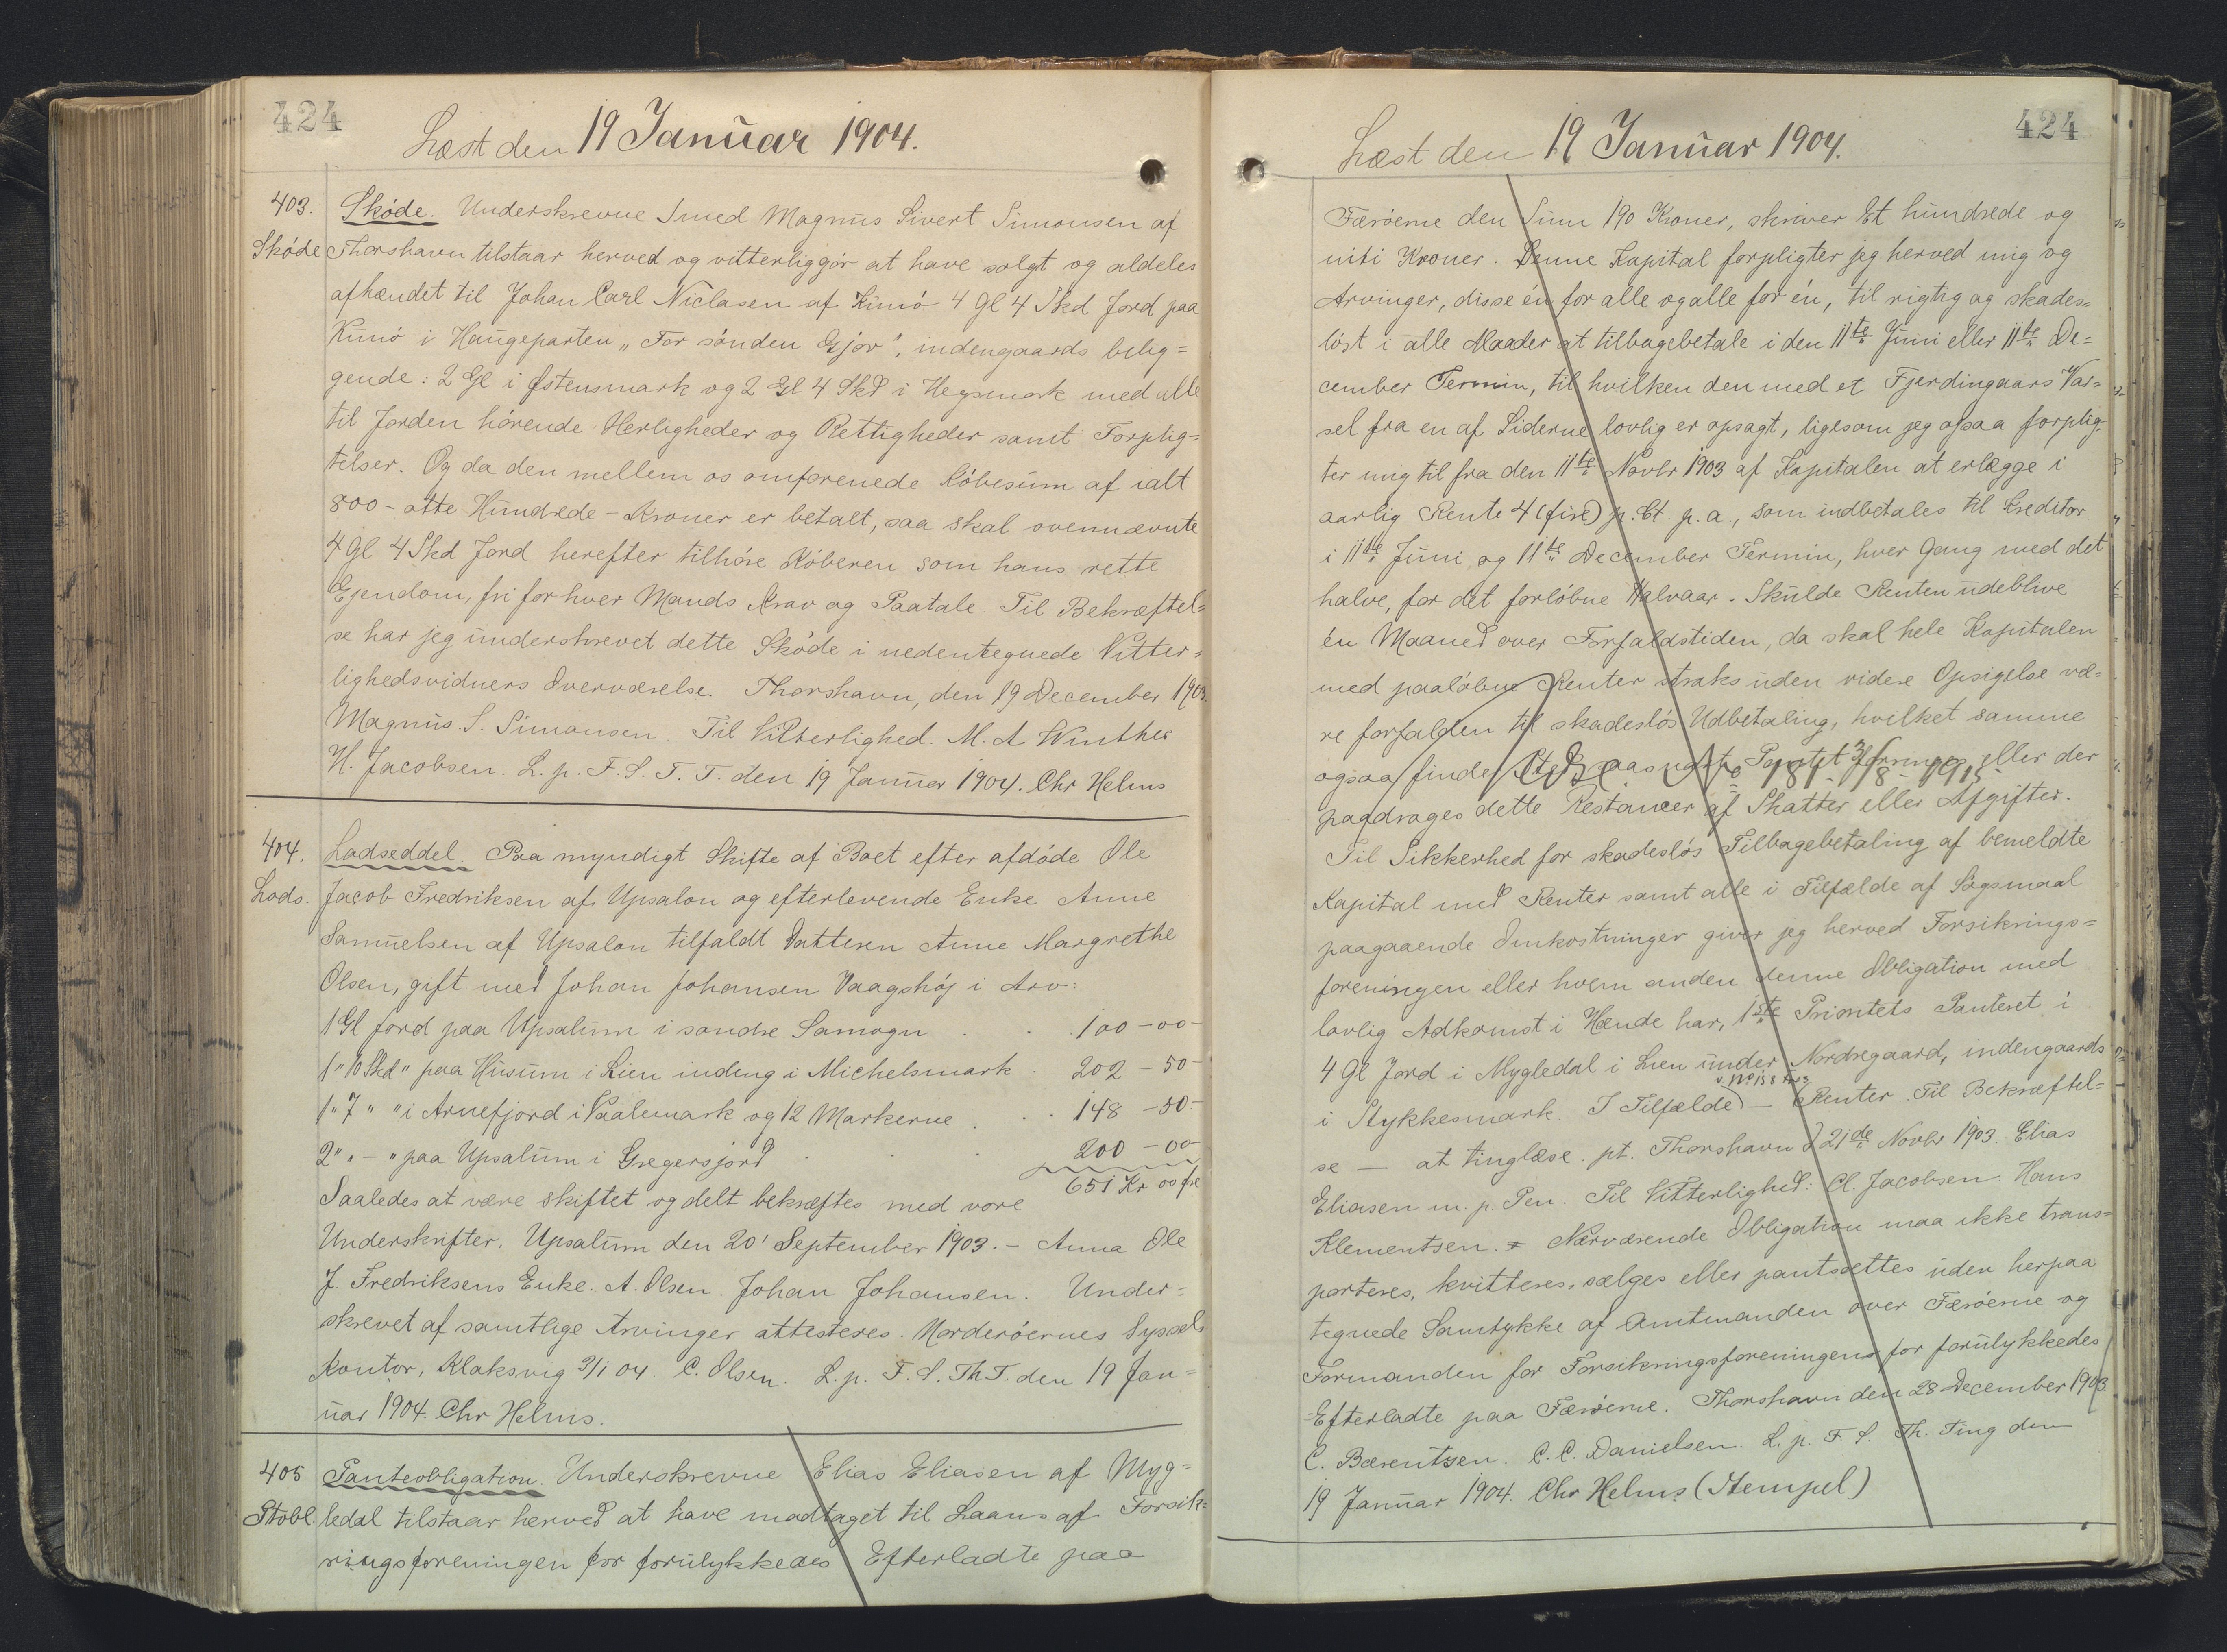 424
Læst den 19 Januar 1904.
403. Skøde. Underskrevne Smed Magnus Sivert Simonsen af
Skøde Thorshavn tilstaar herved og vitterliggør at have solgt og aldeles
afhændet til Johan Carl Niclasen af Kunø 4 Gl 4 Skd Jord paa
Kunø i Haugeparten „For sønden Gjov“, indengaards belig=
gende: 2 Gl i Østensmark og 2 Gl 4 Skd i Hegsmark med alle
til Jorden hørende Herligheder og Rettigheder samt Forplig=
telser. Og da den mellem os omforenede Købesum af ialt
800 - otte Hundrede - Kroner er betalt, saa skal ovennævnte
4 Gl 4 Skd Jord herefter tilhøre Køberen som hans rette
Ejendom, fri for hver Mands Krav og Paatale. Til Bekræftel=
se har jeg underskrevet dette Skøde i nedentegnede Vitter=
lighedsvidners Overværelse. Thorshavn, den 19 December 1903.
Magnus. S. Simonsen. Til Vitterlighed. M. A Winther
H. Jacobsen. L. p. F. S. T. T. den 19 Januar 1904. Chr Helms
404. Lodseddel. Paa myndigt Skifte af Boet efter afdøde Ole
Lods. Jacob Fredriksen af Upsalon og efterlevende Enke Anne
Samuelsen af Upsalon tilfaldt Datteren Anne Margrethe
Olsen, gift med Johan Johansen Vaagshøj i Arv:
1 Gl Jord paa Upsalum i søndre Samogn . . 100-00-
1 " 10 Skd " paa Husum i Lien indeng i Michelsmark . 202-50-
1 " 7 " " i Arnefjord i Vaalemark og 12 Markerne . . 148-50-
2 " " - " paa Upsalum i Gregersjord . . . 200-00-
651 Kr 00 Øre
Saaledes at være skiftet og delt bekræftes med vore
Underskrifter. Upsalum den 20' September 1903. - Anna Ole
J. Fredriksens Enke. A. Olsen. Johan Johansen. Under=
skrevet af samtlige Arvinger attesteres. Norderøernes Syssel=
kontor, Klaksvig 9/1 04 C. Olsen. L. p. F. S. Th T. den 19 Jan=
uar 1904. Chr Helms.
405 Panteobligation. Underskrevne Elias Eliasen af Myg=
Ptobl. ledal tilstaar herved at have modtaget til Laans af Forsik=
ringsforeningen for forulykkedes Efterladte paa
424
Læst den 19 Januar 1904.
Færøerne den Sum 190 Kroner, skriver Et hundrede og
niti Kroner. Denne Kapital forpligter jeg herved mig og
Arvinger, disse én for alle og alle for én, til rigtig og skades=
løst i alle Maader at tilbagebetale i den 11te Juni eller 11te De=
cember Termin, til hvilken den med et Fjerdingaars Var=
sel fra en af Siderne lovlig er opsagt, ligesom jeg ogsaa forplig=
ter mig til fra den 11te Novbr 1903 af Kapitalen at erlægge i
aarlig Rente 4 (fire) p. Ct. p. a., som indbetales til Kreditor
i 11te Juni og 11te December Termin, hver Gang med det
halve, for det forløbne Halvaar. Skulde Renten udeblive
én Maaned over Forfaldstiden, da skal hele Kapitalen
med paaløbne Renter straks uden videre Opsigelse væ=
re forfalden til skadesløs Udbetaling, hvilket samme
ogsaa finder Sted, saasnart Pantet forringes eller der
181 3/8 - 1915
paadrages dette Restancer af Skatter eller Afgifter.
Til Sikkerhed for skadesløs Tilbagebetaling af bemeldte
Kapital med Renter samt alle i Tilfælde af Søgsmaal
paagaaende Omkostninger giver jeg herved Forsikrings=
foreningen eller hvem anden denne Obligation med
lovlig Adkomst i Hænde har, 1ste Prioritets Panteret i
4 Gl Jord i Mygledal i Lien under Nordregaard, indengaards
i Stykkesmark. I Tilfælde - Renter. Til Bekræftel=
se - at tinglæse. pt. Thorshavn d 21de Novbr 1903. Elias
Eliasen m. p. Pen. Til Vitterlighed: Cl. Jacobsen. Hans
Klementsen. = Nærværende Obligation maa ikke trans=
porteres, kvitteres, sælges eller pantsættes uden herpaa
tegnede Samtykke af Amtmanden over Færøerne og
Formanden for Forsikringsforeningen for forulykkedes
Efterladte paa Færøerne. Thorshavn den 28 December 1903.
C. Bærentsen. C. C. Danielsen. L. p. F. S. Th. Ting den
19 Januar 1904. Chr Helms (Stempel)